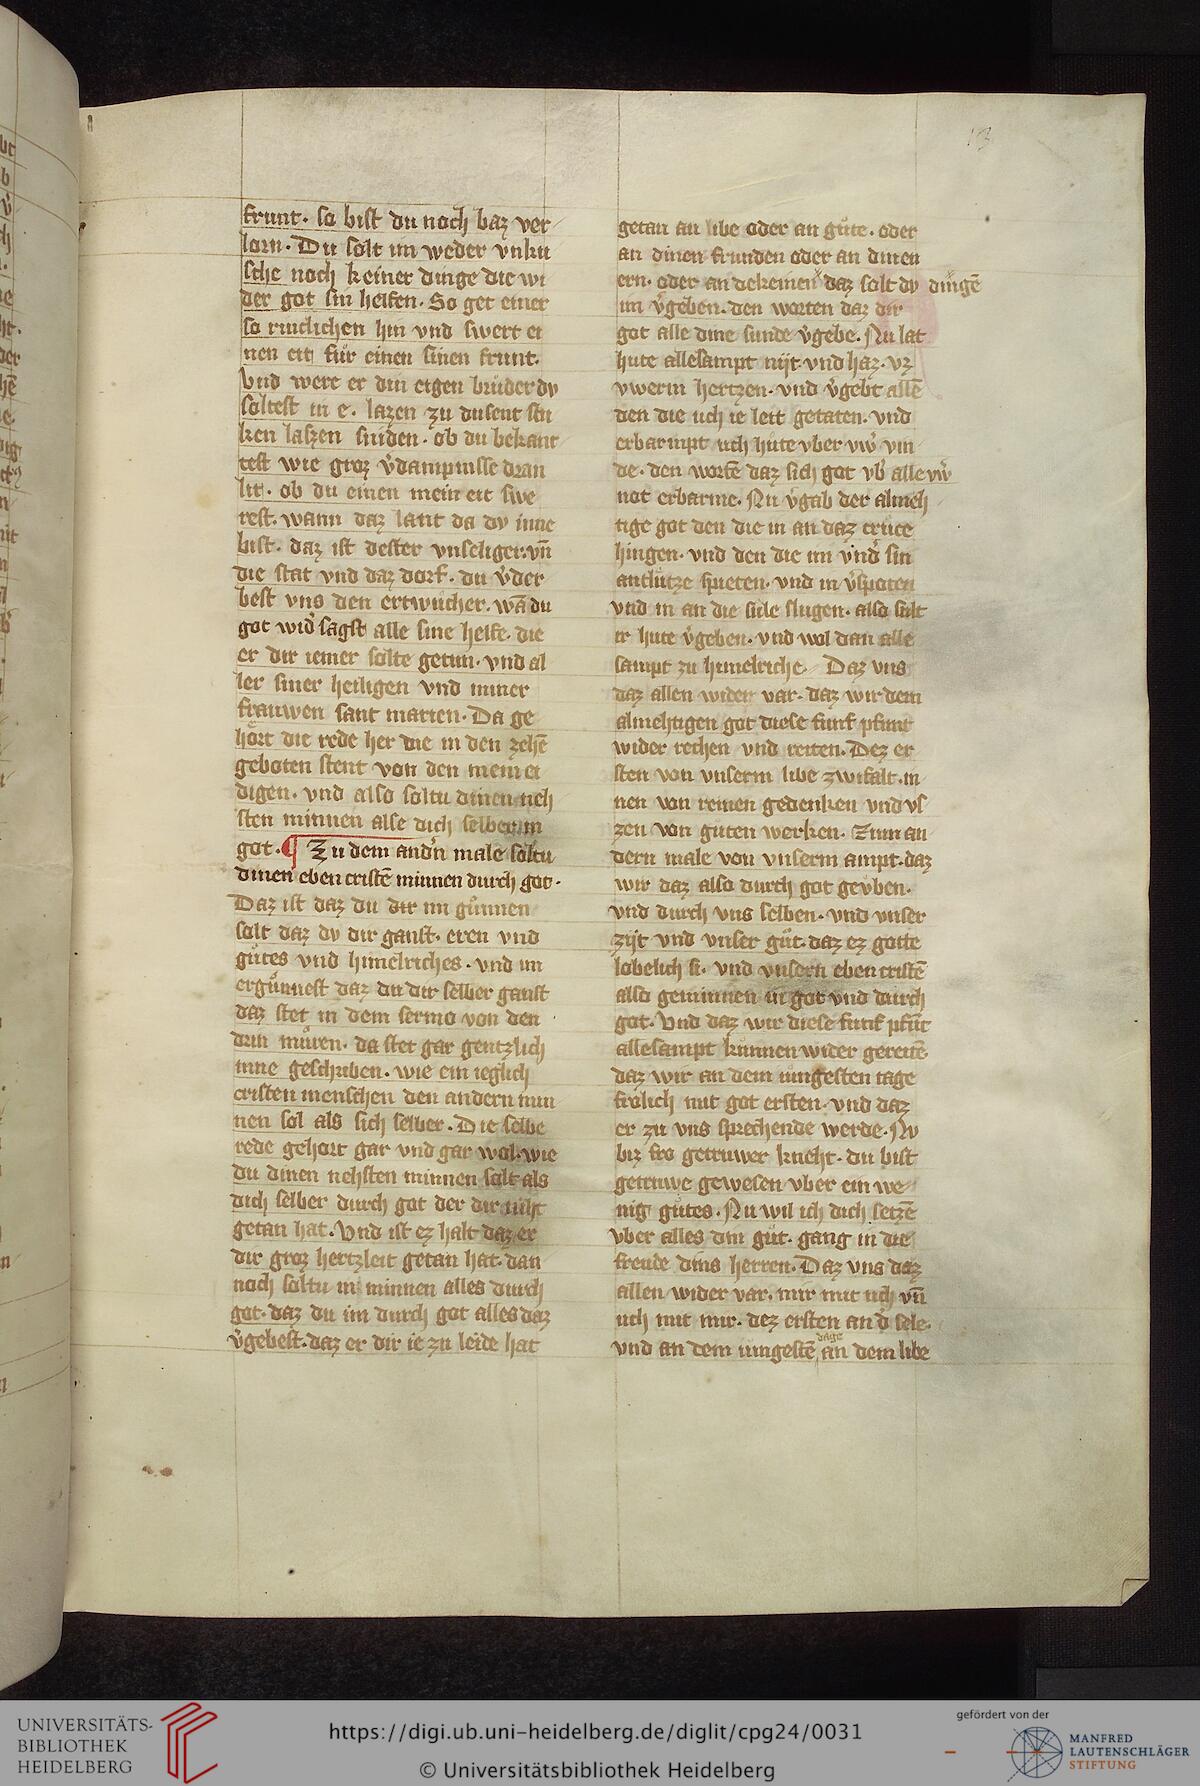 13
frunt. so bist du noch baz ver
lorn. Du solt im weder vnku
sche noch keiner dinge die wi
der got sin helfen. So get einer
so rinclichen hin vnd swert ei
nen eit für einen sinen frunt.
Vnd were er din eigen brůder dv
soltest in e. lazen zu dusent stu
ken laszen sniden. ob du bekant
test wie groz v̉dampnisse dran
lit. ob du einen mein eit swe
rest. wann daz lant da dv inne
bist. daz ist dester vnseliger. vn̄
die stat vnd daz dorf. du v̉der
best vns den ertwůcher. wā du
got wid̉ sagst alle sine helfe. die
er dir iemer solte getun. vnd al
ler siner heiligen vnd miner
frauwen sant marien. Da ge
hőrt die rede her die in den zehē
geboten stent von den mein ei
digen. vnd also soltu dinen neh
sten minnen alse dich selber in
got. ¶ Zu dem and̉n male soltu
dinen eben cristē minnen durch got.
Daz ist daz du dir im gůnnen
solt daz dv dir ganst. eren vnd
gůtes vnd himelriches. vnd im
ergůnnest daz du dir selber ganst
daz stet in dem sermo von den
drin můren. da stet gar gentzlich
inne geschriben. wie ein ieglich
cristen menschen den andern min
nen sol als sich selber. Die selbe
rede gehort gar vnd gar wol. wie
du dinen nehsten minnen solt als
dich selber durch got der dir niht
getan hat. Vnd ist ez halt daz er
dir groz hertzleit getan hat. dan
noch soltu in minnen alles durch
got. daz du im durch got alles daz
v̉gebest. daz er dir ie zu leide hat
getan an libe oder an gůte. oder
an dinen frunden oder an dinen
ern. oder an dekeinen daz solt dv dingē
im v̉geben. den worten daz dir
got alle dine sunde v̉gebe. Nu lat
hute allesampt nijt vnd haz. vz
vwerm hertzen. vnd v̉gebt allē
den die uch ie leit getaten. vnd
erbarmpt uch hůte vber vw̉ vin
de. den wortē daz sich got vb̉ alle vw̉
not erbarme. Nu v̉gab der almeh
tige got den die in an daz crůce
hingen. vnd den die im vnd̉ sin
antlutze spieten. vnd in v̉spoten
vnd in an die sůle slugen. also sult
ir hute v̉geben. vnd wol dan alle
sampt zu himelriche. Daz vns
daz allen wider var. daz wir dem
almehtigen got diese funf pfunt
wider rechen vnd reiten. Dez er
sten von vnserm libe zwifalt. in
nen von reinen gedenken vnd vs
zen von guten werken. Zum an
dern male von vnserm ampt. daz
wir daz also durch got gevben.
vnd durch vns selben. vnd vnser
zijt vnd vnser gůt. daz ez gotte
lobelich si. vnd vnsern eben cristē
also geminnen in got vnd durch
got. Vnd daz wir diese funf pfūt
allesampt kůnnen wider gereitē.
daz wir an dem iungesten tage
frolich mit got ersten. vnd daz
er zu vns sprechende werde. Nv
biz fro getruwer kneht. du bist
getruwe gewesen vber ein we
nig gůtes. Nu wil ich dich setzē
vber alles din gůt. gang in die
freude dins herren. Daz vns daz
allen wider var. mir mit uch vn̄
uch mit mir. dez ersten an d̉ sele.
dage
vnd an dem iungestē an dem libe
UNIVERSITÄTS-
BIBLIOTHEK
HEIDELBERG
https://digi.ub.uni-heidelberg.de/diglit/cpg24/0031
© Universitätsbibliothek Heidelberg
gefördert von der
MANFRED
LAUTENSCHLÄGER
STIFTUNG